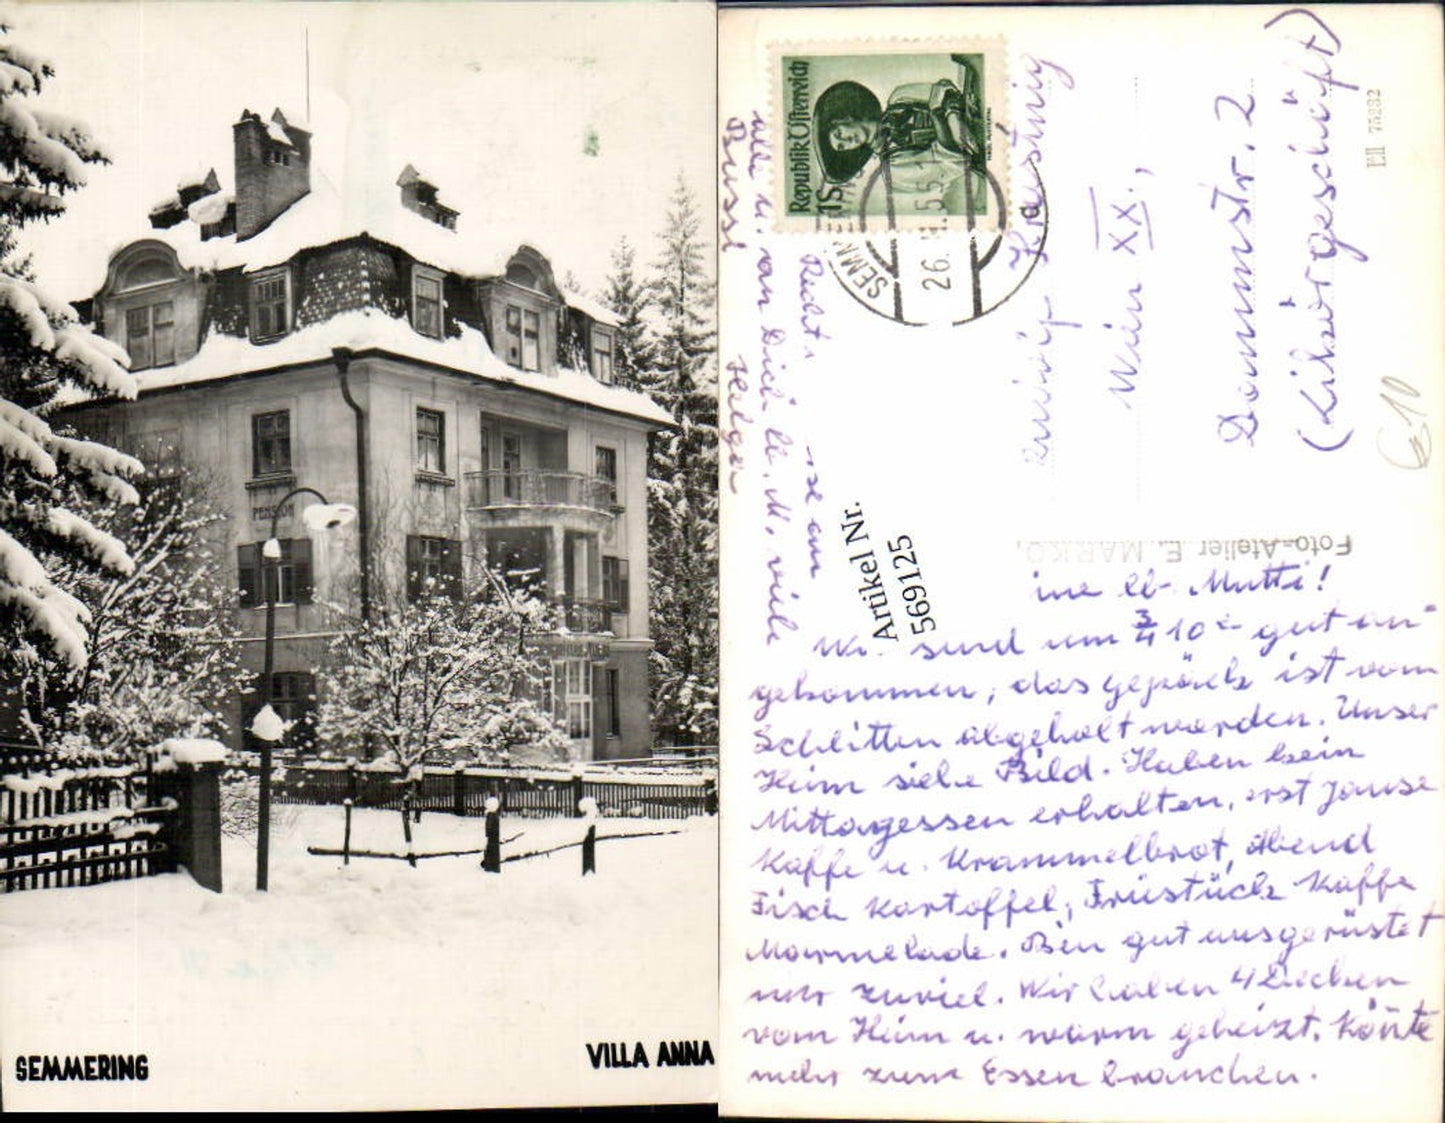 PENSION
SEMMERING
VILLA ANNA
Republik Österreich
1S
SEMME
26.
Wien XX.,
Dammstr. 2
(Likörgeschäft)
Ell 75232
610
Foto-Atelier E. MARKO,
Artikel Nr.
569125
lb. Mutti!
sind um 3/4 10 gut an-
gekommen, das gepäck ist vom
Schlitten abgeholt worden. Unser
Heim siehe Bild. Haben kein
Mittagessen erhalten, erst Jause
Kaffe u. Krammelbrot, Abend
Fisch Kartoffel, Früstück Kaffe
Marmelade. Bin gut ausgerüstet
nur zuviel. Wir haben 4 Decken
vom Heim u. warm geheizt. Könte
mehr zum Essen brauchen.
alle u. an Dich lb. M. viele
Bussi
Helga